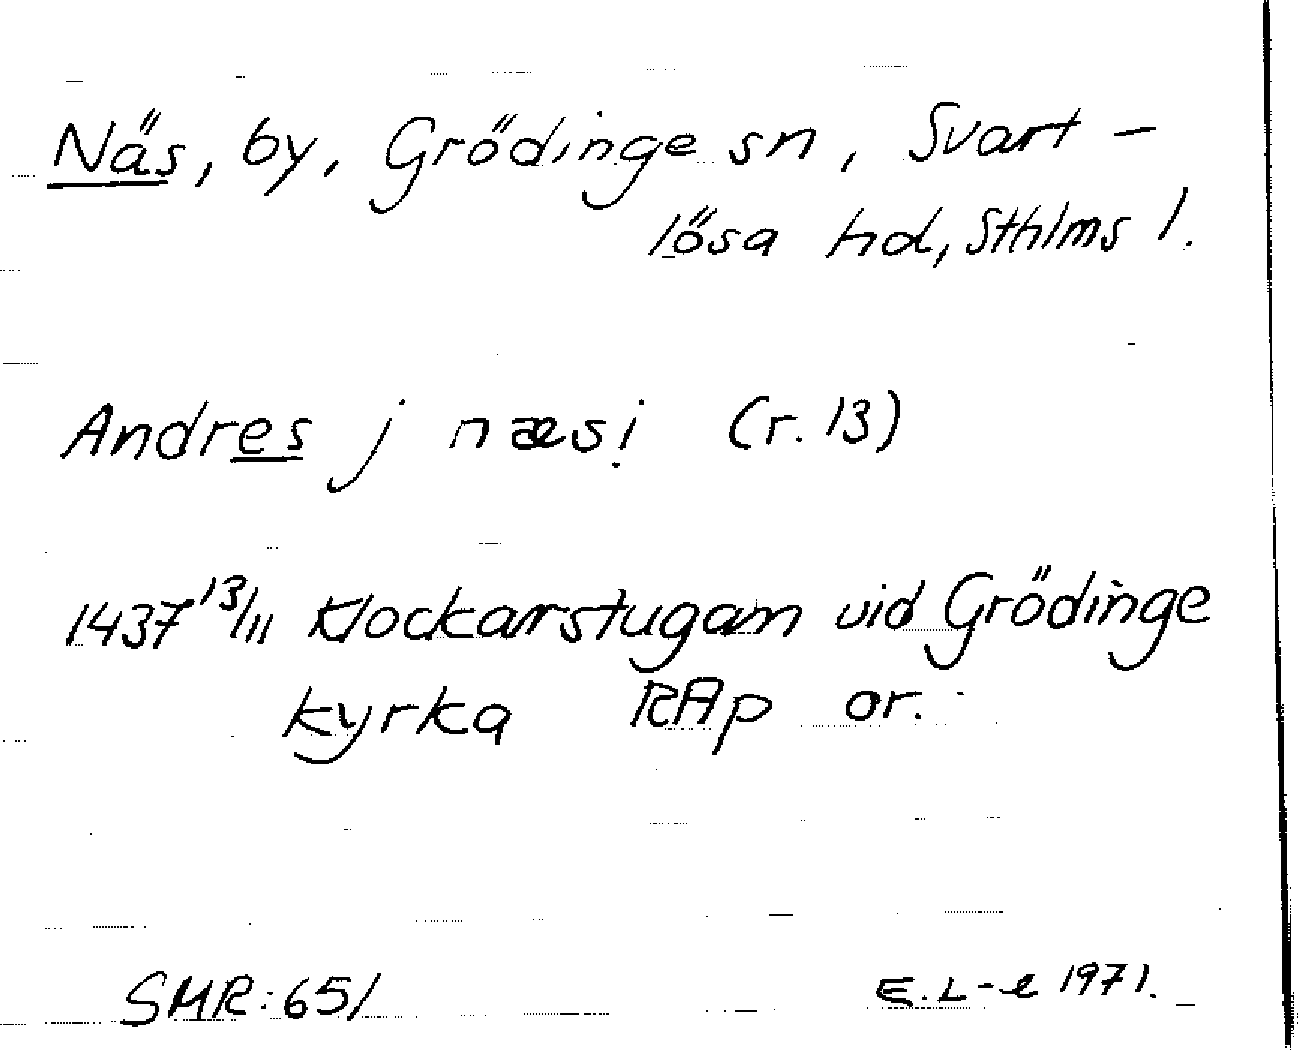 Näs, by, Grödinge sn, Svart-
lösa hd, Sthlms l.
Andres j næsi (r. 13)
1437 13/11 Klockarstugan vid Grödinge
kyrka RAp or.
SMR: 651
E. L-e 1971.